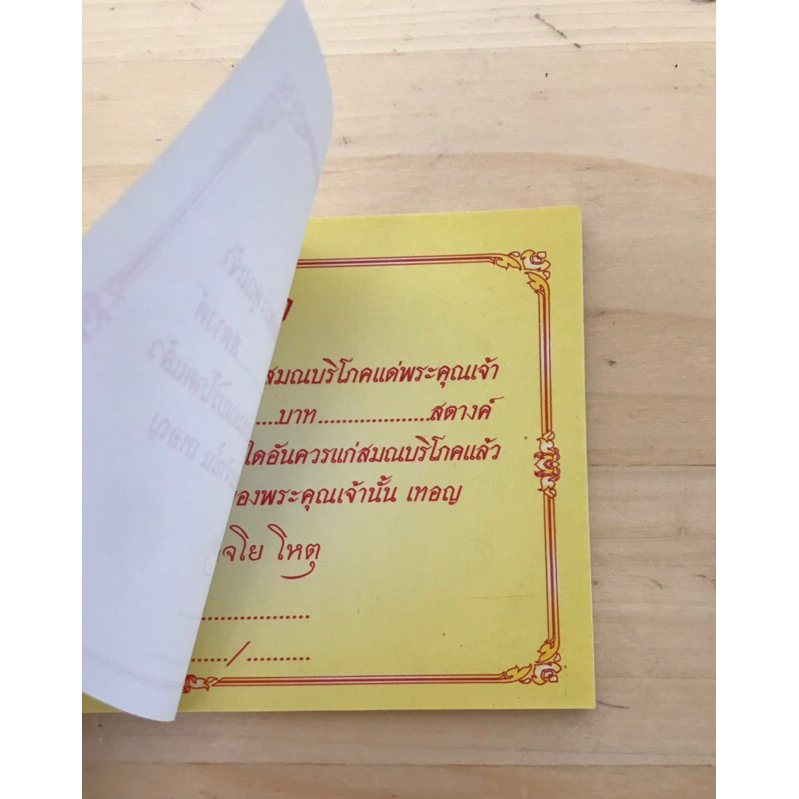 สมณบริโภคแด่พระคุณเจ้า
....บาท...................สตางค์
ใดอันควรแก่สมณบริโภคแล้ว
องพระคุณเจ้านั้น เทอญ
จโย โหตุ
..................
........../...........